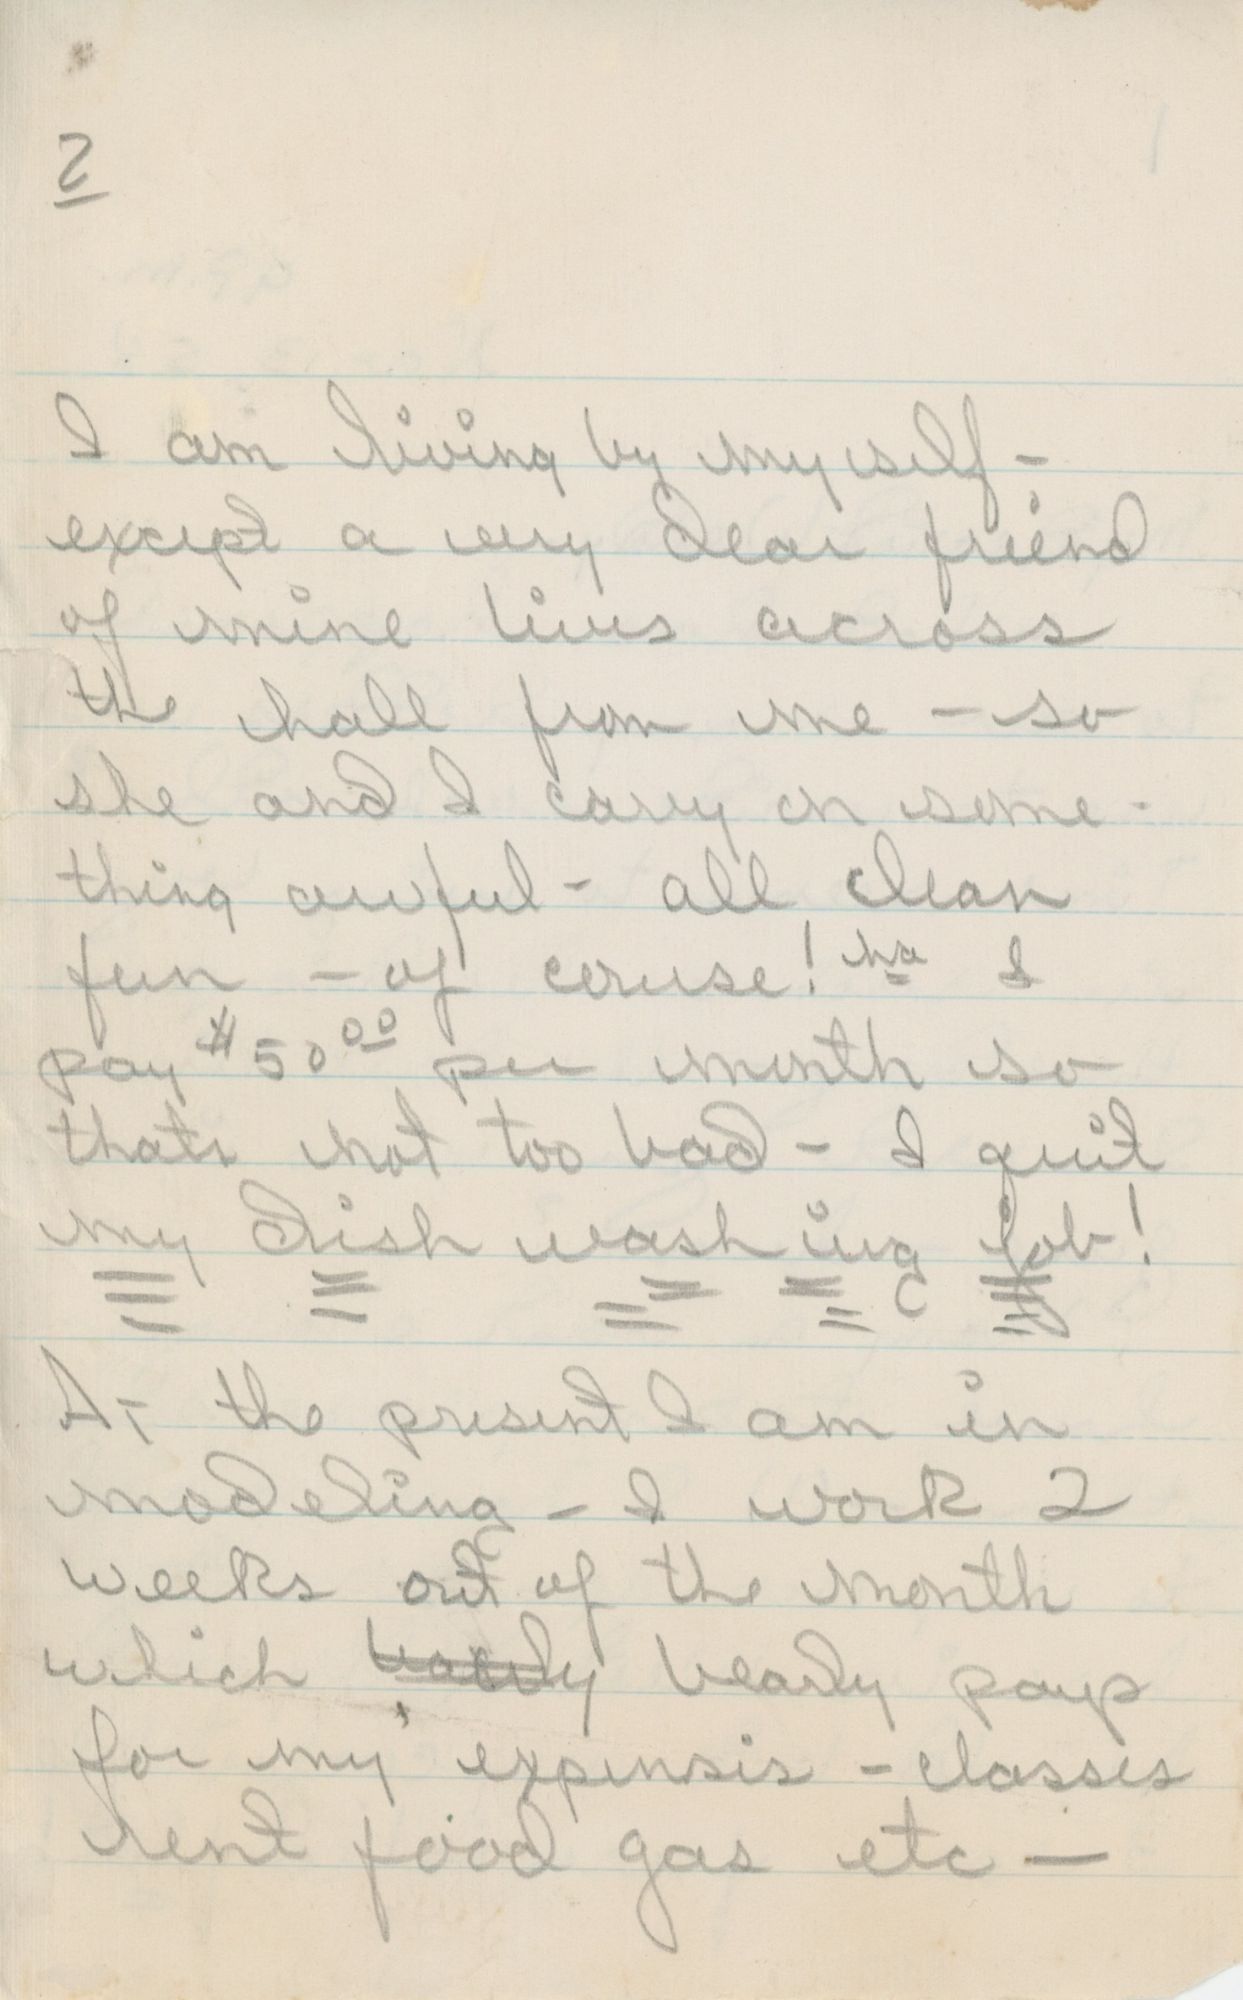 2
I am living by my self -
except a very dear friend
of mine lives across
the hall from me - so
she and I carry on some -
thing awful - all clean
fun - of coruse! ha I
pay $50 00 per month so
thats not too bad - I quit
my dish washing job!
At the present I am in
modeling - I work 2
weeks out of the month
which bearly pays
for my expensis - classes
rent food gas etc —